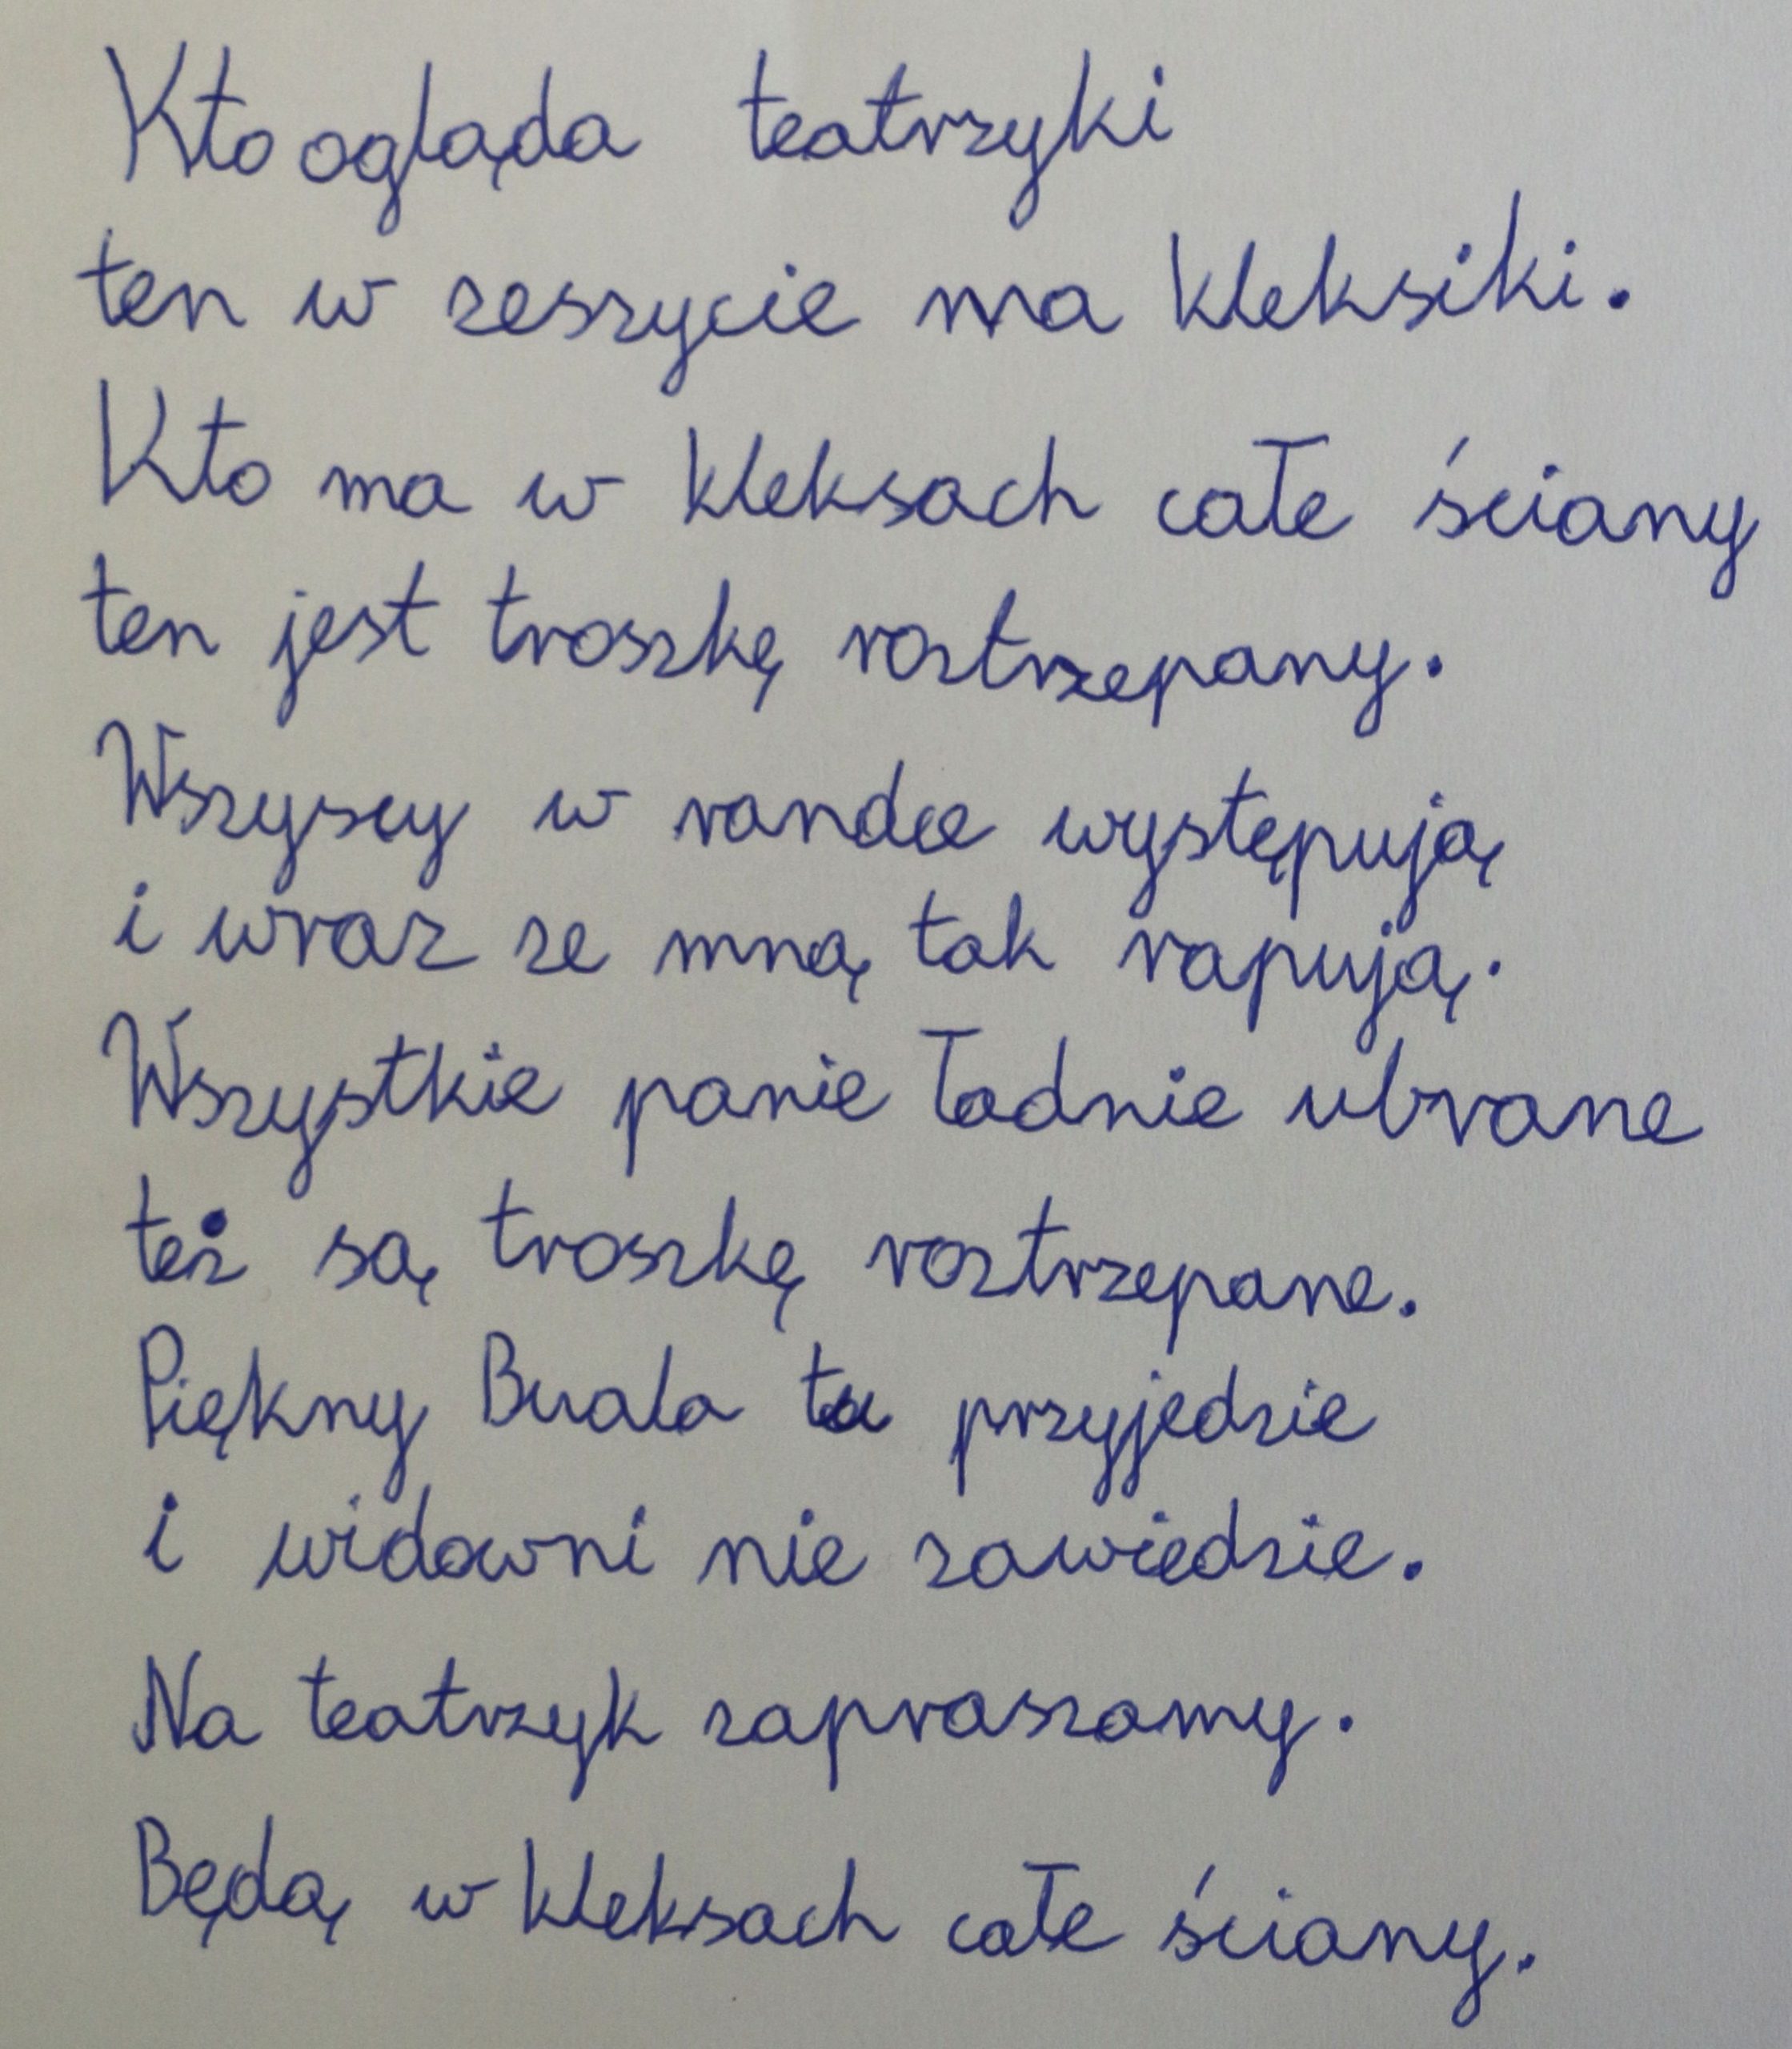 Kto ogląda teatrzyki
ten w zeszycie ma kleksiki.
Kto ma w kleksach całe ściany
ten jest troszkę roztrzepany.
Wszyscy w randce występują
i wraz ze mną tak rapują.
Wszystkie panie ładnie ubrane
też są troszkę roztrzepane.
Piękny Buala tu przyjedzie
i widowni nie zawiedzie.
Na teatrzyk zapraszamy.
Będą w kleksach całe ściany.